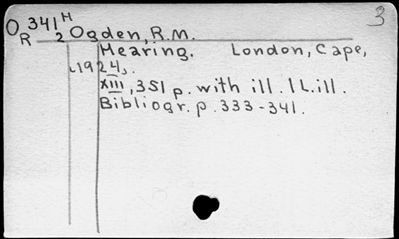 O 341 H 3
R 2 Ogden, R.M.
Hearing. London, Cape,
[1924].
XIII, 351 p. with ill. 1 L. ill.
Bibliogr. p. 333-341.